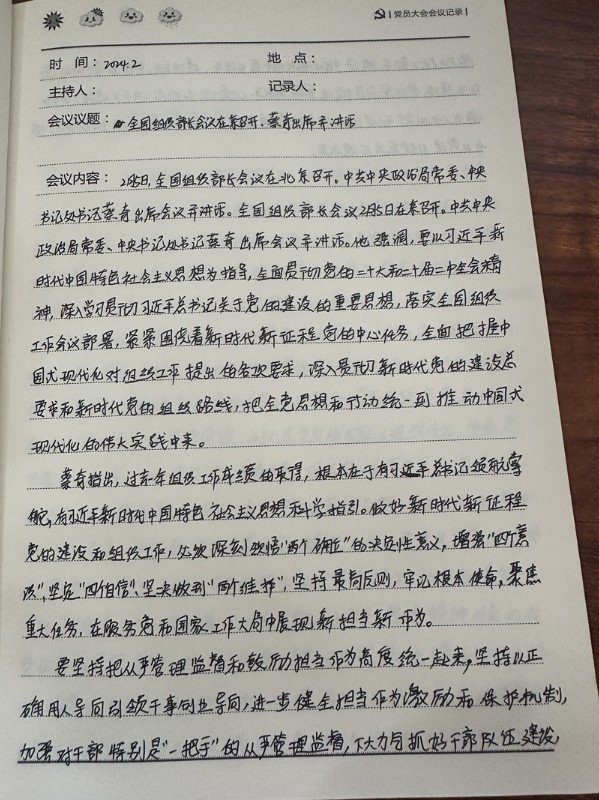 党员大会会议记录
时 间：2024.2 地 点：
主持人： 记录人：
会议议题： 全国组织部长会议在京召开、蔡奇出席并讲话
会议内容： 2月5日，全国组织部长会议在北京召开。中共中央政治局常委、中央
书记处书记蔡奇出席会议并讲话。全国组织部长会议2月5日在京召开。中共中央
政治局常委、中央书记处书记蔡奇出席会议并讲话。他强调，要以习近平新
时代中国特色社会主义思想为指导，全面贯彻党的二十大和二十届二中全会精
神，深入学习贯彻习近平总书记关于党的建设的重要思想，落实全国组织
工作会议部署，紧紧围绕着新时代新征程党的中心任务，全面把握中
国式现代化对组织工作提出的各项要求，深入贯彻新时代党的建设总
要求和新时代党的组织路线，把全党思想和行动统一到推动中国式
现代化的伟大实践中来。
蔡奇指出，过去一年组织工作成绩的取得，根本在于有习近平总书记领航掌
舵，有习近平新时代中国特色社会主义思想科学指引。做好新时代新征程
党的建设和组织工作，必须深刻领悟“两个确立”的决定性意义，增强“四个意
识”、坚定“四个自信”、坚决做到“两个维护”，坚持最高原则，牢记根本使命，聚焦
重大任务，在服务党和国家工作大局中展现新担当新作为。
要坚持把从严管理监督和鼓励担当作为高度统一起来，坚持以正
确用人导向引领干事创业导向，进一步健全担当作为激励和保护机制，
加强对干部特别是“一把手”的从严管理监督，下大力气抓好干部队伍建设，